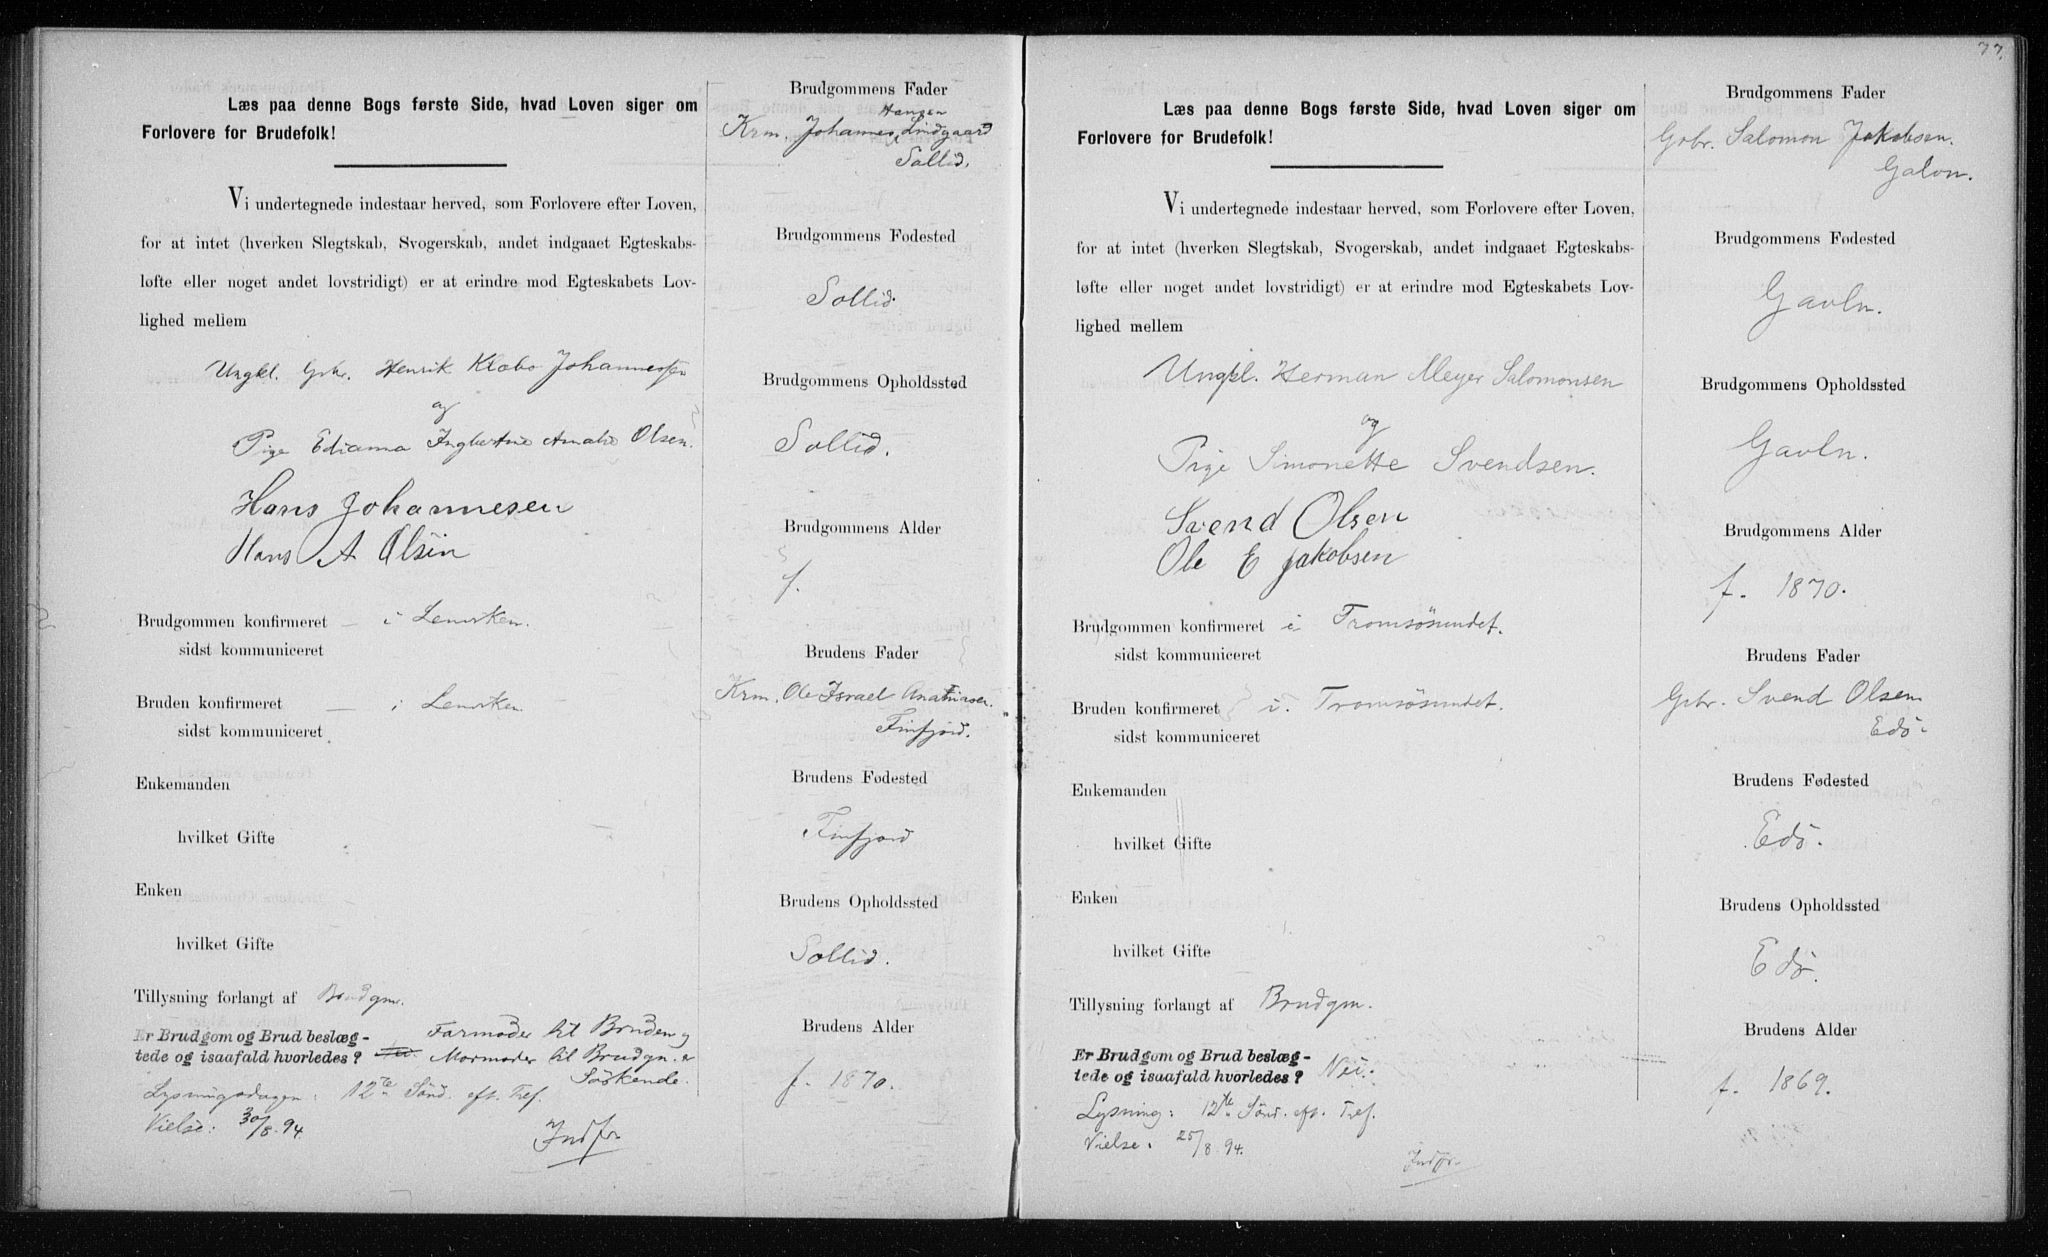 Læs paa denne Bogs første Side, hvad Loven siger om
Forlovere for Brudefolk!
Vi undertegnede indestaar herved, som Forlovere efter Loven,
for at intet (hverken Slegtskab, Svogerskab, andet indgaaet Egteskabs-
løfte eller noget andet lovstridigt) er at erindre mod Egteskabets Lov-
lighed mellem
Ungkl. Gbr. Henrik Klæbo Johannessen
og
Pige Edianna Ingbertine Amalie Olsen.
Hans Johannesen
Hans A Olsen
Brudgommen konfirmeret — i Lenviken.
sidst kommuniceret
Bruden konfirmeret — i Lenviken.
sidst kommuniceret
Enkemanden
hvilket Gifte
Enken
hvilket Gifte
Tillysning forlangt af Brudgm.
Er Brudgom og Brud beslæg-
tede og isaafald hvorledes?
Farmoder til Bruden og
Mormoder til Brudgm. er
Söskende.
Lysningsdagen: 12te Sönd. eft. Tref.
Vielse: 30/8. 94.
Indfr
Brudgommens Fader
Hansen
Krm. Johannes Lindgaard
Sollid.
Brudgommens Fødested
Sollid.
Brudgommens Opholdssted
Sollid.
Brudgommens Alder
f.
Brudens Fader
Krm. Ole Israel
Finfjord.
Brudens Fødested
Finfjord
Brudens Opholdssted
Sollid.
Brudens Alder
f. 1870.
77.
Læs paa denne Bogs første Side, hvad Loven siger om
Forlovere for Brudefolk!
Vi undertegnede indestaar herved, som Forlovere efter Loven,
for at intet (hverken Slegtskab, Svogerskab, andet indgaaet Egteskabs-
løfte eller noget andet lovstridigt) er at erindre mod Egteskabets Lov-
lighed mellem
Ungkl. Herman Meyer Salomonsen
og
Pige Simonette Svendsen.
Svend Olsen
Ole E Jakobsen
Brudgommen konfirmeret i Tromsösundet.
sidst kommuniceret
Bruden konfirmeret i. Tromsösundet.
sidst kommuniceret
Enkemanden
hvilket Gifte
Enken
hvilket Gifte
Tillysning forlangt af Brudgm.
Er Brudgom og Brud beslæg-
tede og isaafald hvorledes? Nei.
Lysning: 12te Sönd. eft. Tref.
Vielse: 25/8 94.
Indfr.
Brudgommens Fader
Gbr. Salomon Jakobsen.
Brudgommens Fødested
Gavln.
Brudgommens Opholdssted
Gavln.
Brudgommens Alder
f. 1870.
Brudens Fader
Gbr. Svend Olsen
Edö.
Brudens Fødested
Edö.
Brudens Opholdssted
Edö.
Brudens Alder
f. 1869.